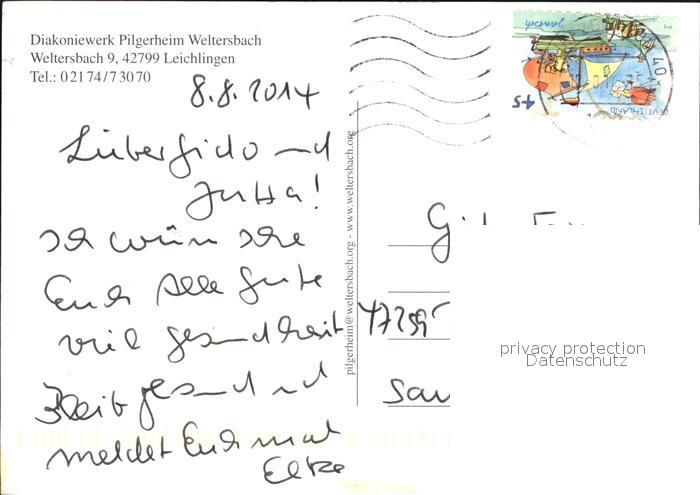 Diakoniewerk Pilgerheim Weltersbach
Weltersbach 9, 42799 Leichlingen
Tel.: 02174/73070
8.8.2014
Lieber Gido und
Jutta!
Ich wünsche
Euch Alle gute
viel gesundheit
Bleib gesund und
meldet Euch mal
Elke
pilgerheim@weltersbach.org - www.weltersbach.org
45
DEUTSCHLAND
40
privacy protection
Datenschutz